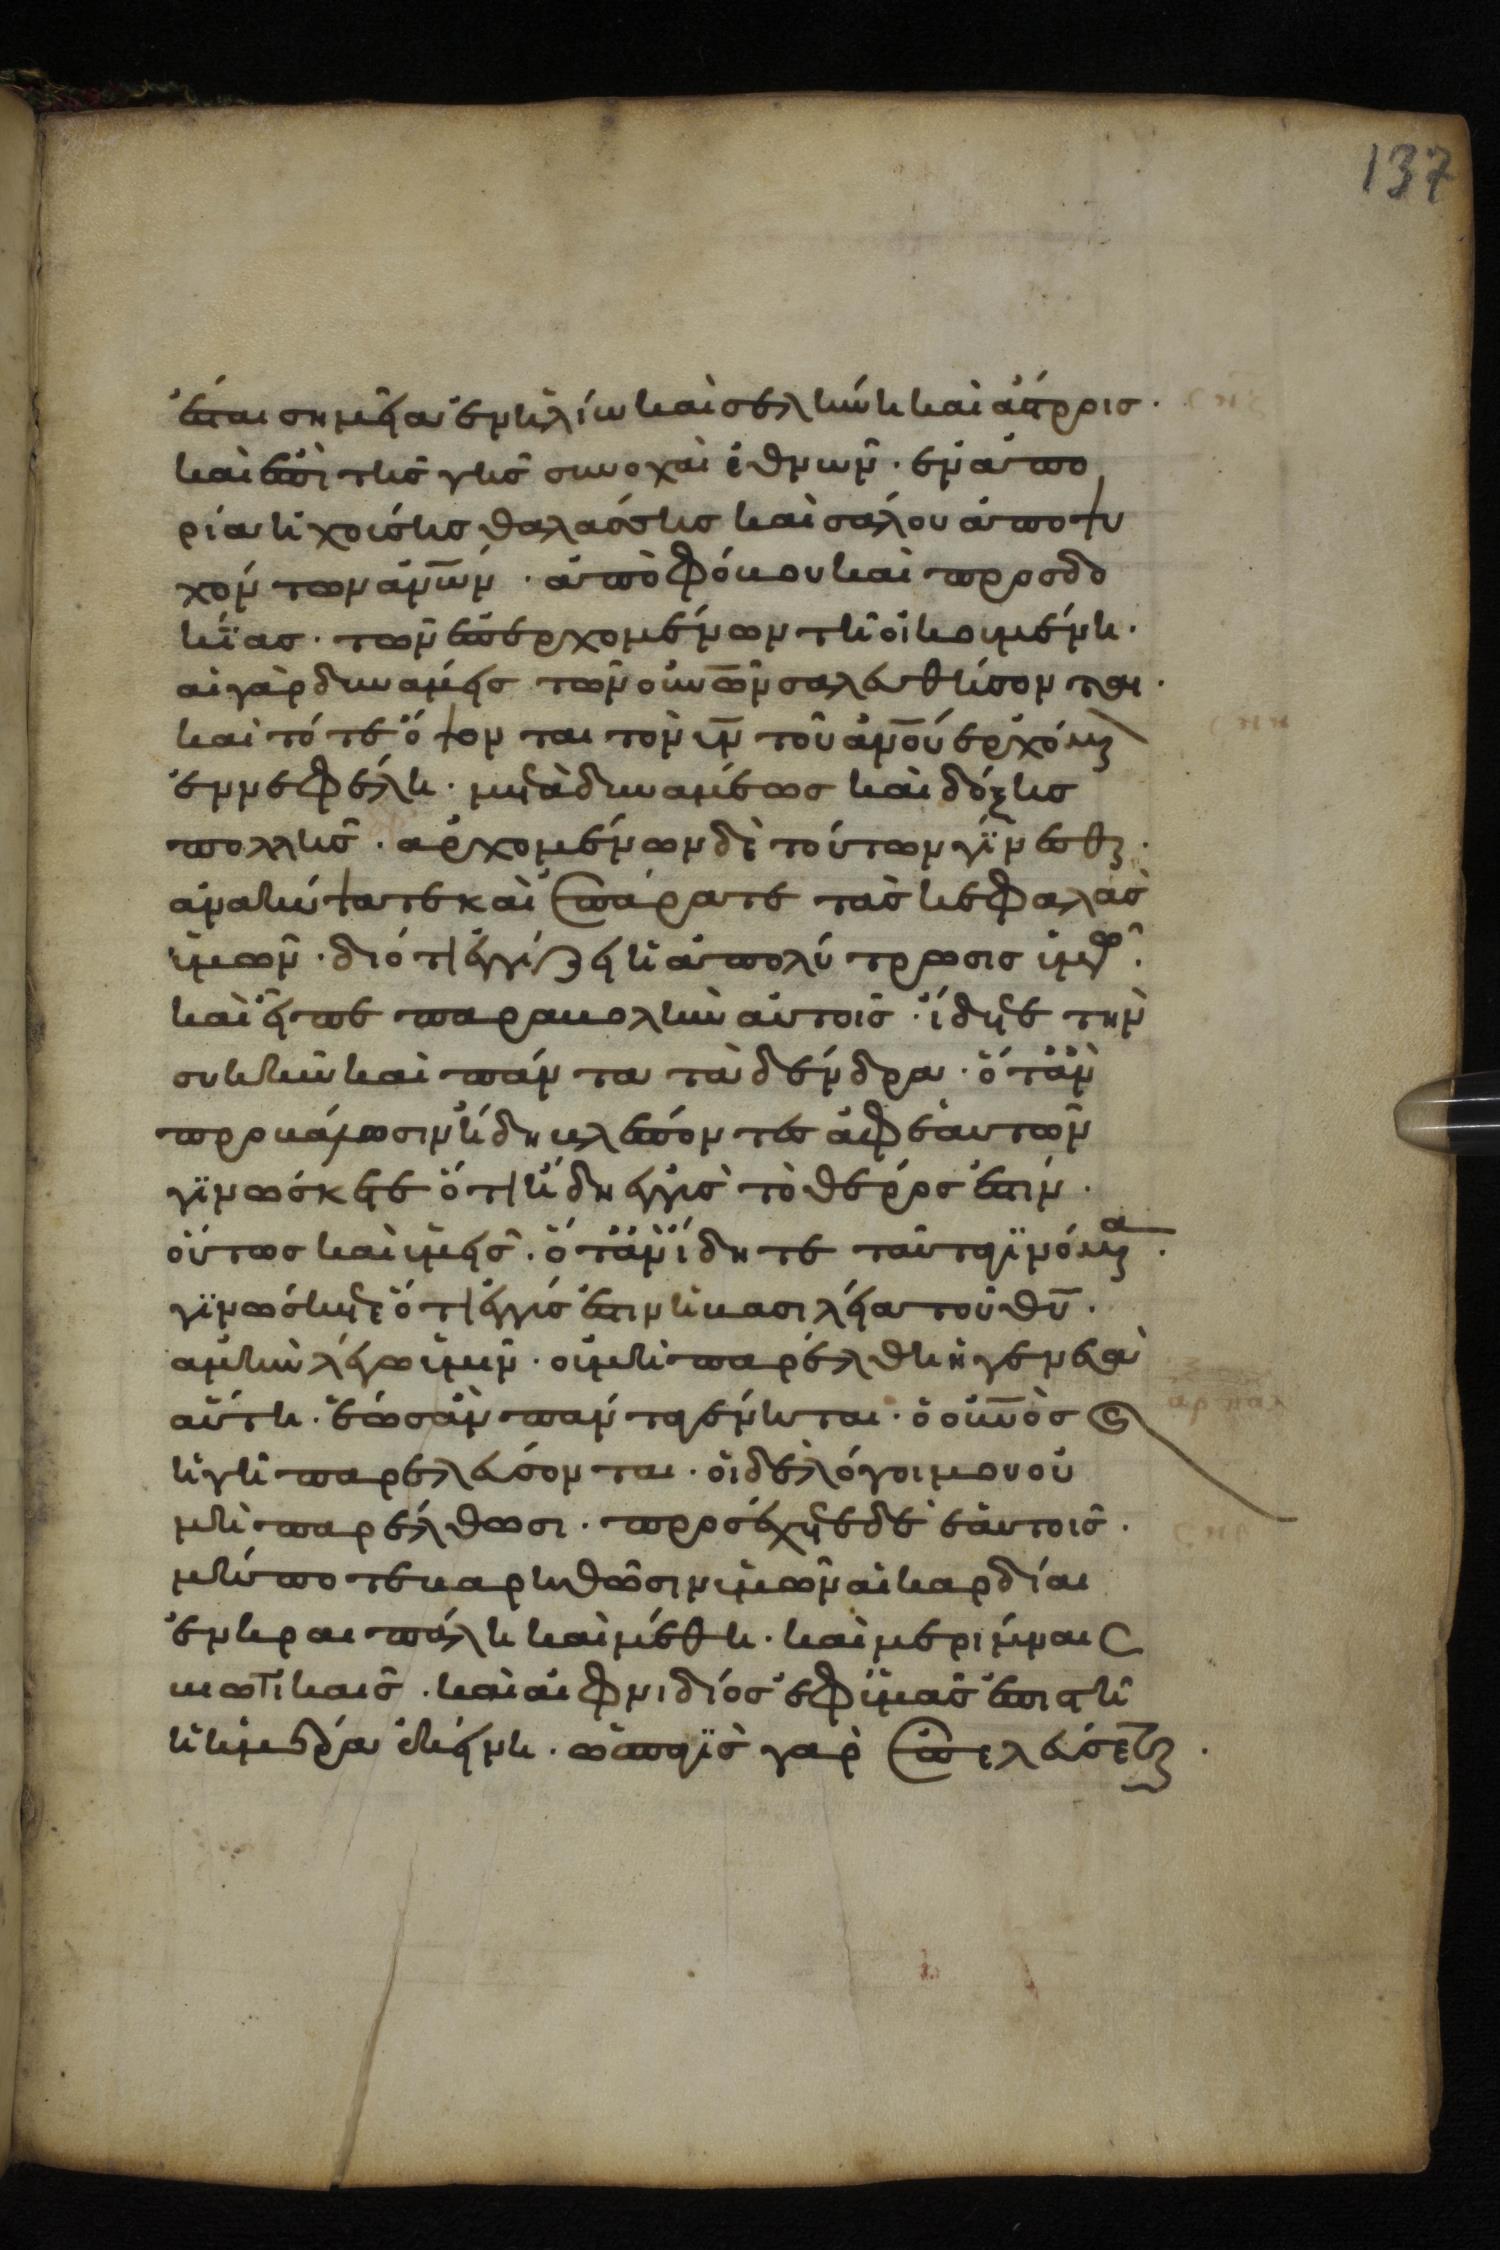 137
ἔσται σημεῖα ἐν ἡλίω καὶ σελήνη καὶ ἄστροις·
καὶ ἐπὶ τῆς γῆς συνοχὴ ἐθνῶν· ἐν ἀπο
ρία ἠχούσης θαλάσσης καὶ σάλου ἀποψυ
χόν των ἀν̅ων· ἀπὸ φόβου καὶ προσδο
κίας· τῶν ἐπερχομένων τῆ οἰκουμένη·
αἱ γὰρ δυνάμεις τῶν οὐν̅ων σαλευθήσονται·
καὶ τότε ὄψονται τὸν υν̅ τοῦ αν̅ου ἐρχόμ
ἐν νεφέλη· μετὰ δυνάμεως καὶ δόξης
πολλῆς· ἀρχομένων δὲ τούτων γίνεσθαι·
ἀνακύψατε καὶ ἐπάρατε τὰς κεφαλὰς
ὑμῶν· διότι ἐγγίζει ἡ ἀπολύτρωσις ὑμῶν·
καὶ εἶπε παραβολὴν αὐτοῖς· ἴδετε τὴν
συκῆν καὶ πάντα τὰ δένδρα· ὅταν
προβάλωσιν ἤδη βλέποντες ἀφ ἑαυτῶν
γινώσκετε ὅτι ἤδη ἐγγὺς τὸ θέρος ἐστίν·
οὕτως καὶ ὑμεῖς· ὅταν ἴδητε ταῦτα γινόμενα·
γινώσκετε ὅτι ἐγγύς ἐστιν ἡ βασιλεία τοῦ θυ̅·
ἀμὴν λέγω ὑμῖν· οὐ μὴ παρέλθη ἡ γενεὰ
αὕτη· ἕως ἂν πάντα γένηται· ὁ οὐν̅ὸς καὶ
ἡ γῆ παρελεύσονται· οἱ δὲ λόγοι μου οὐ
μὴ παρέλθωσι· προσέχετε δὲ ἑαυτοῖς·
μήποτε βαρηθῶσιν ὑμῶν αἱ καρδίαι
ἐν κραιπάλη καὶ μέθη· καὶ μερίμναις
βιωτικαῖς· καὶ αἰφνίδιος ἐφ ὑμᾶς ἐπιστῆ
ἡ ἡμέρα ἐκείνη· ὡς παγὶς γὰρ ἐπελεύσεται·